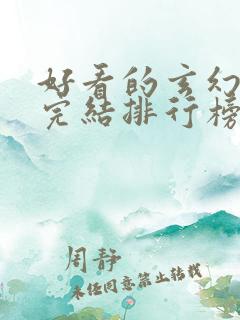 好看的玄幻
完结排行榜
周静
未经同意禁止转载